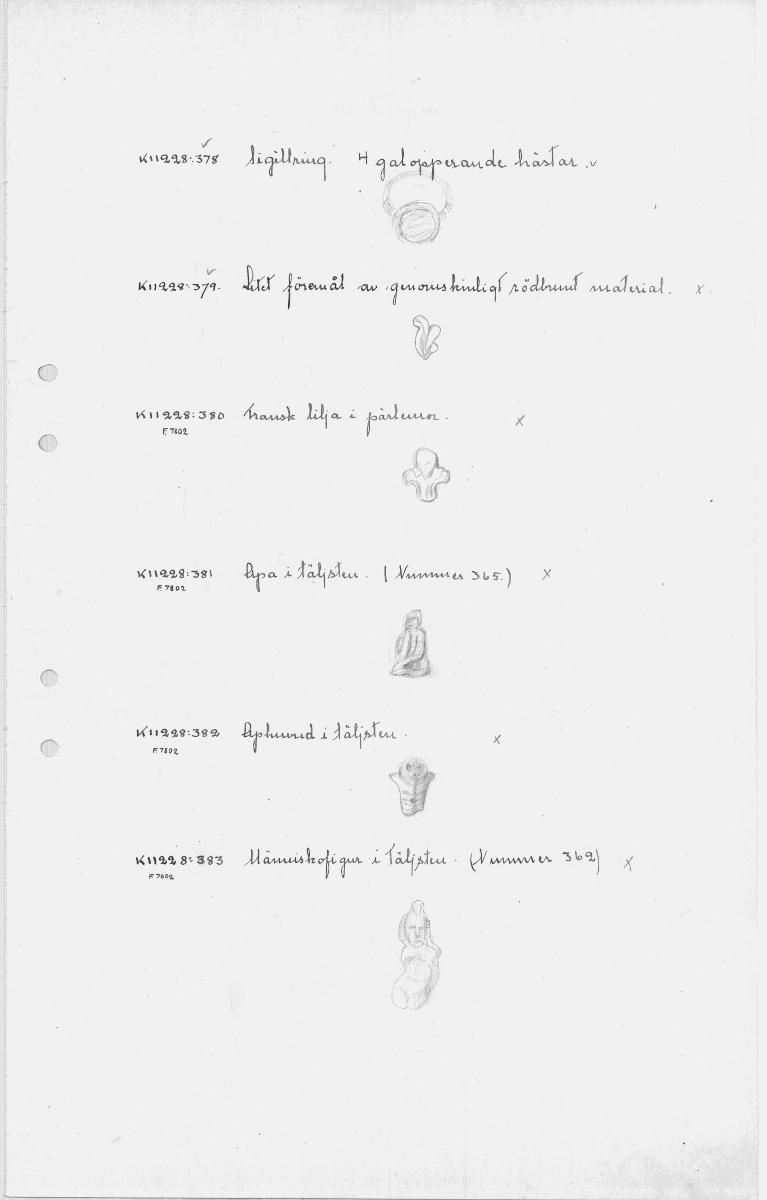 K11228:378 Sigillring. 4 galopperande hästar. v
K11228:379. Litet föremål av genomskinligt rödbrunt material. x
K11228:380 Fransk lilja i pärlemor. x
F.7802
K11228:381 Apa i täljsten. (Nummer 365.) x
F.7802
K11228:382 Aphuvud i täljsten. x
F.7802
K11228:383 Människofigur i täljsten. (Nummer 362) x
F.7802